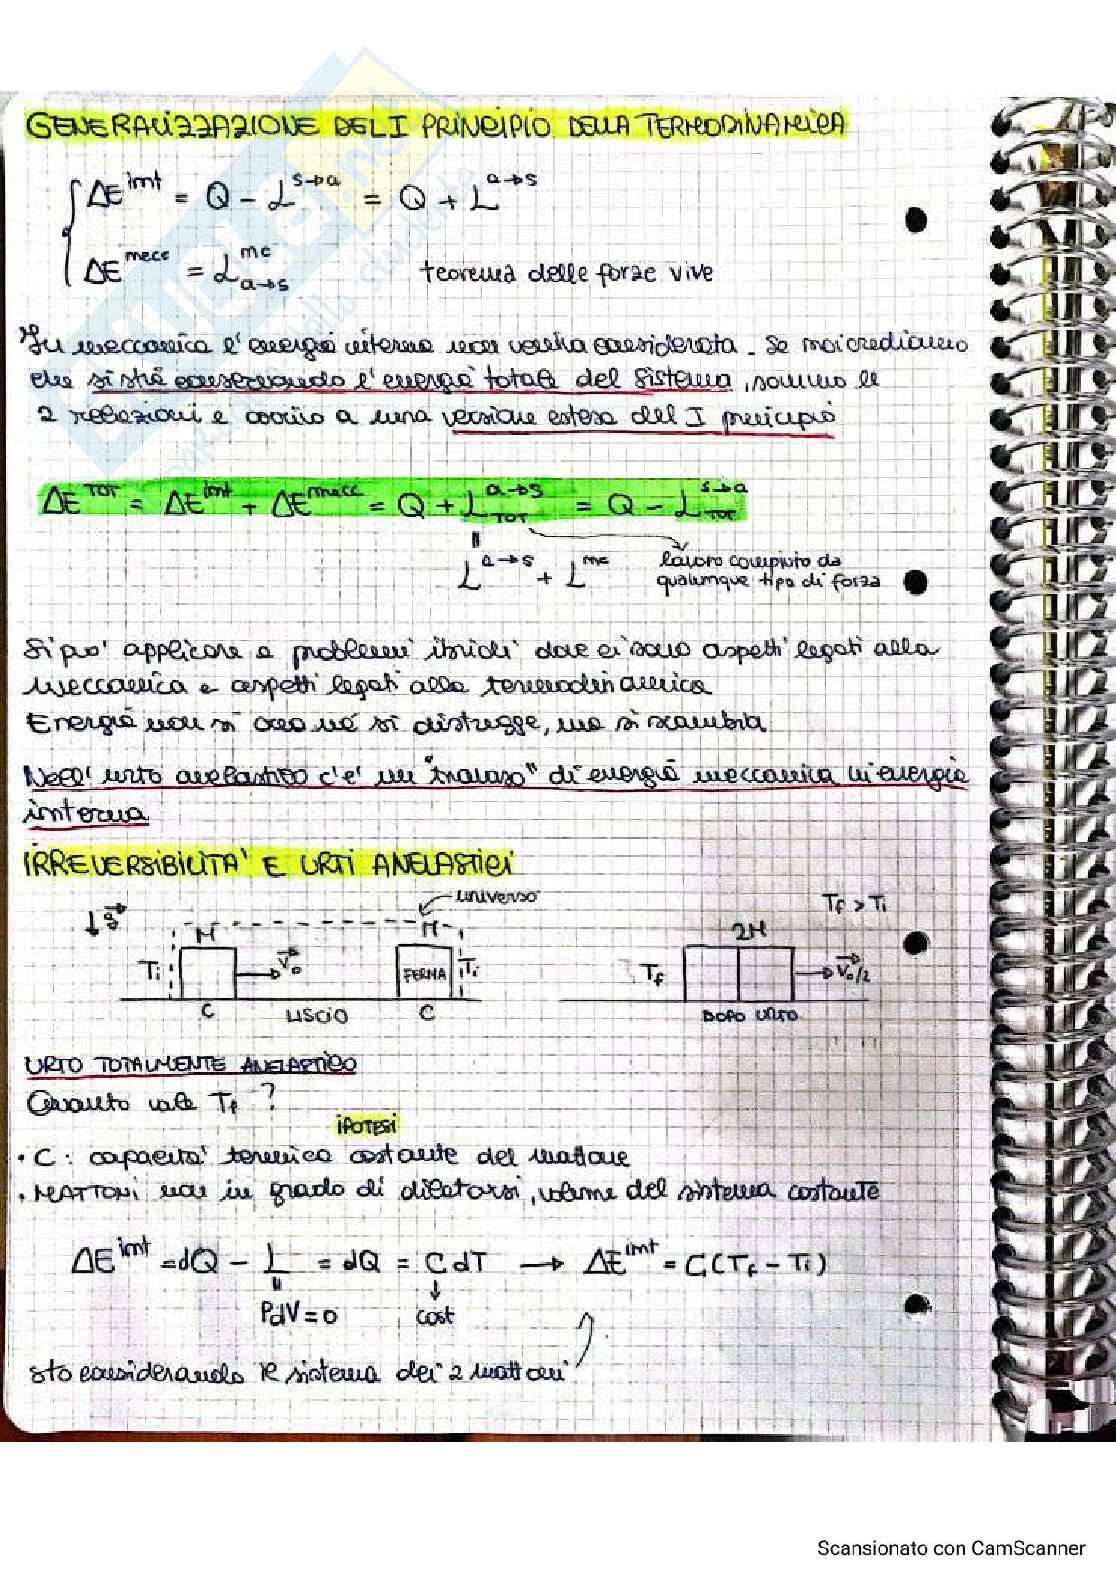 GENERALIZZAZIONE DEL I PRINCIPIO DELLA TERMODINAMICA
ΔE^int = Q - L^s→a = Q + L^a→s
ΔE^mecc = L^mc_a→s teorema delle forze vive
In meccanica l'energia interna non veniva considerata. Se noi crediamo
che si stia conservando l'energia totale del sistema, sommo le
2 relazioni e arrivo a una versione estesa del I principio
ΔE^TOT = ΔE^int + ΔE^mecc = Q + L^a→s_TOT = Q - L^s→a_TOT
L^a→s + L^mc lavoro compiuto da
qualunque tipo di forza
Si può applicare a problemi ibridi dove ci sono aspetti legati alla
meccanica e aspetti legati alla termodinamica
Energia non si crea né si distrugge, ma si scambia
Nell'urto anelastico c'è un "travaso" di energia meccanica in energia
interna
IRREVERSIBILITA' E URTI ANELASTICI
universo
g M M Tf > Ti
2M
Ti v₀ FERMA Ti Tf v₀/2
C LISCIO C DOPO URTO
URTO TOTALMENTE ANELASTICO
Quanto vale Tf ?
IPOTESI
• C : capacità termica costante del mattone
• MATTONI non in grado di dilatarsi, volume del sistema costante
ΔE^int = dQ - L = dQ = C dT → ΔE^int = C(Tf - Ti)
PdV = 0 cost
sto considerando il sistema dei 2 mattoni
Scansionato con CamScanner